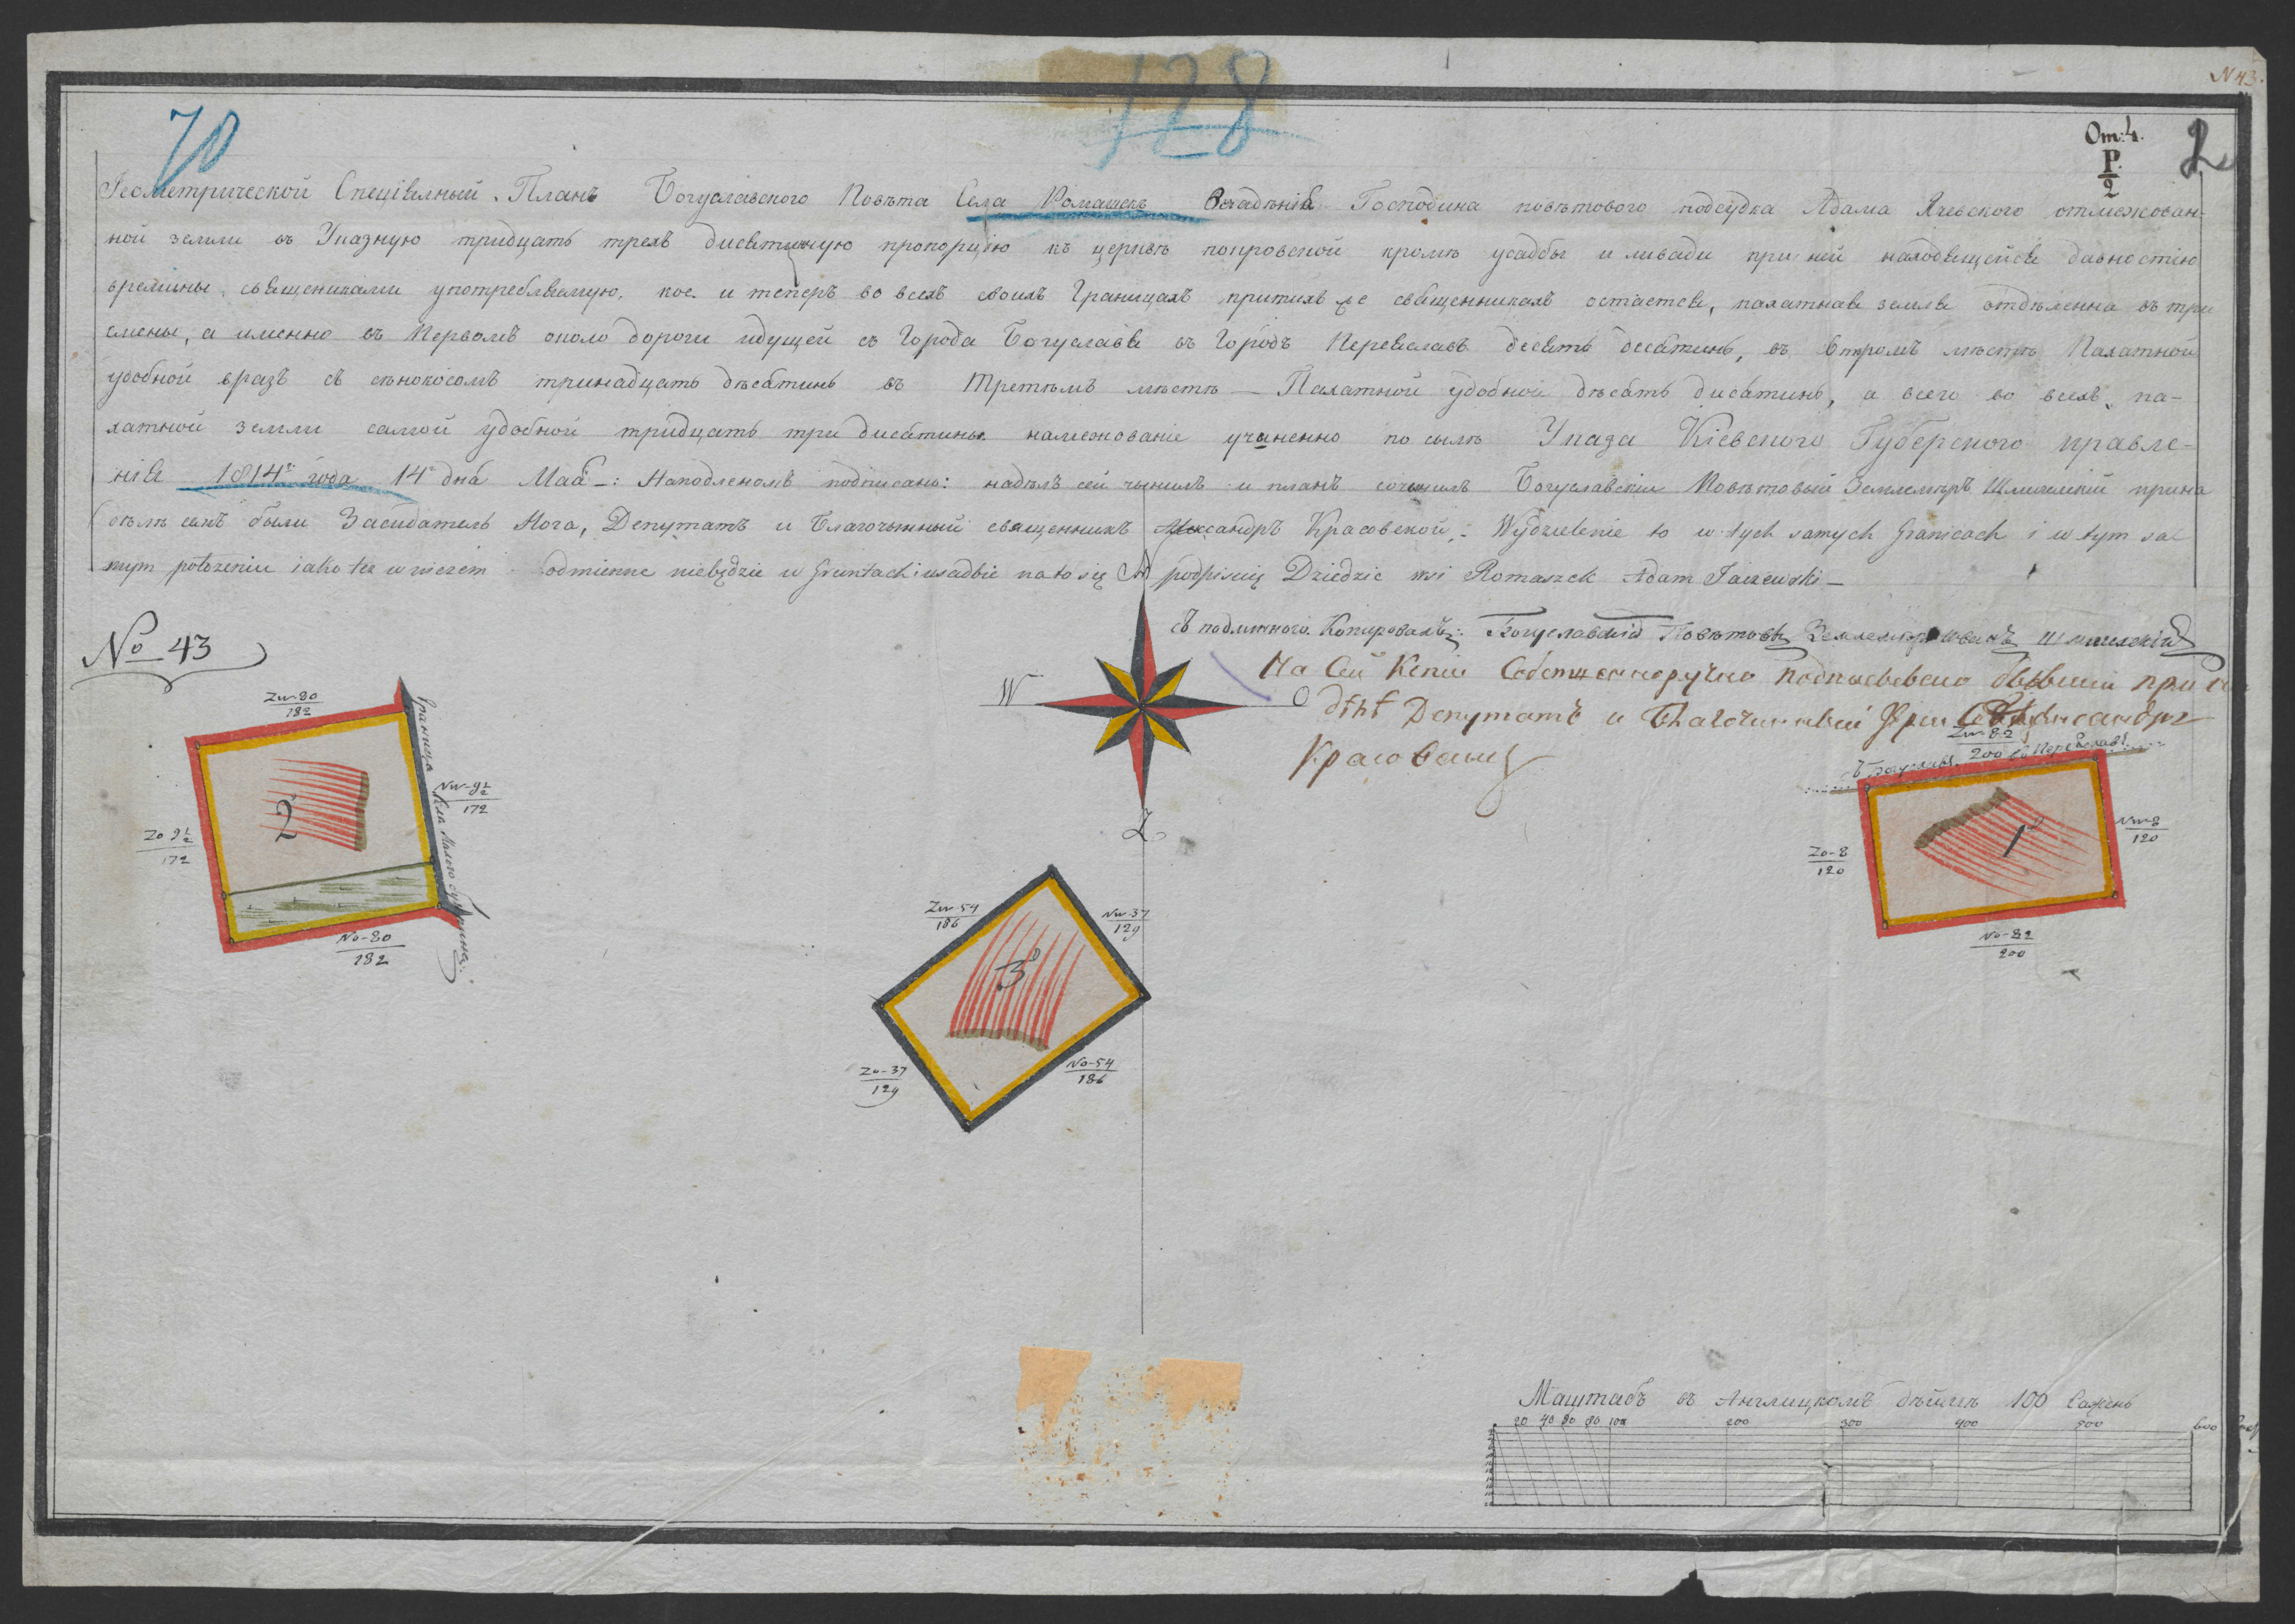 N 43.
128
70
От: 4.
Р.
2
2
Геометрической Спеціялный Планъ Богуславского Повѣта Села Ромашекъ Господина повѣтового подсудка Адама Ячевского отмежован-
ной земли въ Указную тридцать трехъ дисятинную пропорцію къ церквѣ покровской кромѣ усадбы и ливади при ней находящейся давностію
времины священиками употребляемую, кое и теперъ во всехъ своихъ Границахъ притихъ же священникахъ остается, пахатная земля отдѣленна въ три
смены, а именно въ Первомъ около дороги идущей съ Города Богуславя въ Городъ Переяславъ десять десятинъ, въ Втромъ мѣстѣ Пахатной
удобной вразъ съ сѣнокосомъ тринадцать дѣсятинъ въ Третѣмъ мѣстѣ — Пахатной удобной дѣсять дисятинъ, а всего во всехъ па-
хатной земли самой удобной тридцать три дисятины намежованіе учиненно по силѣ Указа Кіевского Губерского правле-
нія 1814го года 14 дня Мая —: Наподленомъ подписано: надѣлъ сей чынилъ и планъ сочинилъ Богуславскій Повѣтовый Землемѣръ прина
дѣлѣ семъ были Засидатель Нога, Депутатъ и Благочынный священникъ Александръ Красовской, - Wydzielenie to w tych samych Granicach i w tym sa
mym położeniu iako też w niczem odmienne niebędzie w Gruntach i usadbie na to się podpisuię Dziedzic wsi Romaszek Adam Jaczewski —
съ подлинного Копировалъ: Богуславскій Повѣтовый Землемѣръ
На Сей Копіи Собственноручно Подписалъ бывшій при
дѣлѣ Депутатъ и Благочинный Александръ
Красовскій
No 43
N
W
O
Z
Zw-80
182
Граница Села Малого Букрина
Nw-9½
172
Zo 9½
172
2
No-80
182
Zw-54
186
Nw-37
129
3
Zo-37
129
No-54
186
Zw-82
200
съ Богуславя въ Переяславъ
Nw-8
120
Zo-8
120
1
No-82
200
Маштабъ въ Англицкомъ дюймѣ 100 Сажень
20 40 60 80 100 200 300 400 500 600